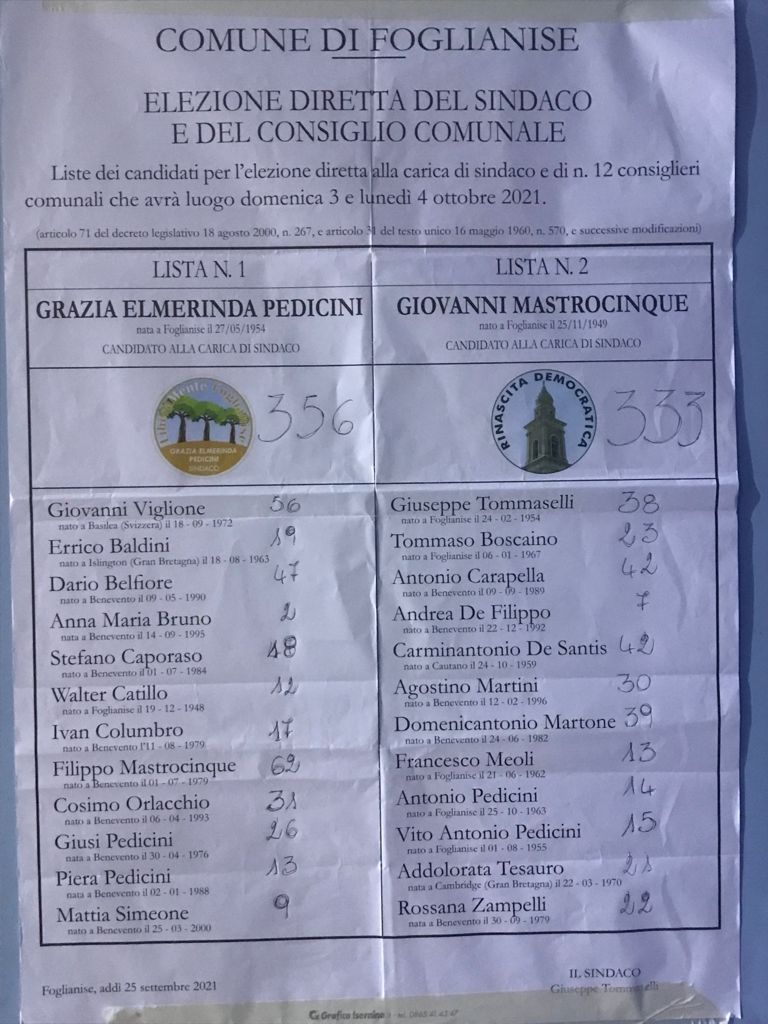 COMUNE DI FOGLIANISE
ELEZIONE DIRETTA DEL SINDACO
E DEL CONSIGLIO COMUNALE
Liste dei candidati per l'elezione diretta alla carica di sindaco e di n. 12 consiglieri
comunali che avrà luogo domenica 3 e lunedì 4 ottobre 2021.
(articolo 71 del decreto legislativo 18 agosto 2000, n. 267, e articolo 31 del testo unico 16 maggio 1960, n. 570, e successive modificazioni)
LISTA N. 1
GRAZIA ELMERINDA PEDICINI
nata a Foglianise il 27/05/1954
CANDIDATO ALLA CARICA DI SINDACO
GRAZIA ELMERINDA
PEDICINI
SINDACO
356
Giovanni Viglione 56
nato a Basilea (Svizzera) il 18 - 09 - 1972
Errico Baldini 19
nato a Islington (Gran Bretagna) il 18 - 08 - 1963
Dario Belfiore 47
nato a Benevento il 09 - 05 - 1990
Anna Maria Bruno 2
nata a Benevento il 14 - 09 - 1995
Stefano Caporaso 18
nato a Benevento il 01 - 07 - 1984
Walter Catillo 12
nato a Foglianise il 19 - 12 - 1948
Ivan Columbro 17
nato a Benevento l'11 - 08 - 1979
Filippo Mastrocinque 62
nato a Benevento il 01 - 07 - 1979
Cosimo Orlacchio 31
nato a Benevento il 06 - 04 - 1993
Giusi Pedicini 26
nata a Benevento il 30 - 04 - 1976
Piera Pedicini 13
nata a Benevento il 02 - 01 - 1988
Mattia Simeone 9
nato a Benevento il 25 - 03 - 2000
LISTA N. 2
GIOVANNI MASTROCINQUE
nato a Foglianise il 25/11/1949
CANDIDATO ALLA CARICA DI SINDACO
RINASCITA DEMOCRATICA
333
Giuseppe Tommaselli 38
nato a Foglianise il 24 - 02 - 1954
Tommaso Boscaino 23
nato a Foglianise il 06 - 01 - 1967
Antonio Carapella 42
nato a Benevento il 09 - 09 - 1989
Andrea De Filippo 7
nato a Benevento il 22 - 12 - 1992
Carminantonio De Santis 42
nato a Cautano il 24 - 10 - 1959
Agostino Martini 30
nato a Benevento il 12 - 02 - 1996
Domenicantonio Martone 39
nato a Benevento il 24 - 06 - 1982
Francesco Meoli 13
nato a Foglianise il 21 - 06 - 1962
Antonio Pedicini 14
nato a Foglianise il 25 - 10 - 1963
Vito Antonio Pedicini 15
nato a Foglianise il 01 - 08 - 1955
Addolorata Tesauro 21
nata a Cambridge (Gran Bretagna) il 22 - 03 - 1970
Rossana Zampelli 22
nata a Benevento il 30 - 09 - 1979
Foglianise, addì 25 settembre 2021
IL SINDACO
Giuseppe Tommaselli
Grafica Isernina